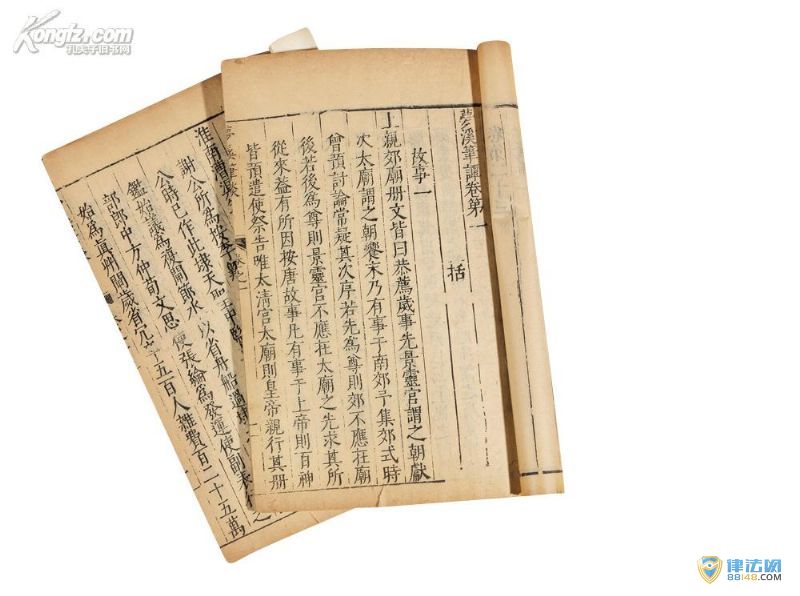 Kongfz.com
孔夫子旧书网
夢溪筆談卷第一
括
故事一
上親郊廟册文皆曰恭薦歲事先景靈宮謂之朝獻
次太廟謂之朝饗末乃有事于南郊予集郊式時
曾預討論常疑其次序若先爲尊則郊不應在廟
後若後爲尊則景靈宮不應在太廟之先求其所
從來蓋有所因按唐故事凡有事于上帝則百神
皆預遣使祭告唯太清宮太廟則皇帝親行其册
淮南漕渠
謝公所爲按李翱
公時已作此埭天聖中
鑑始議爲復閘節水以省舟船過埭
部郎中方仲荀文思使張綸爲發運使副表行之
始爲眞州閘歲省冗卒五百人雜費百二十五萬
律法网
88148.COM